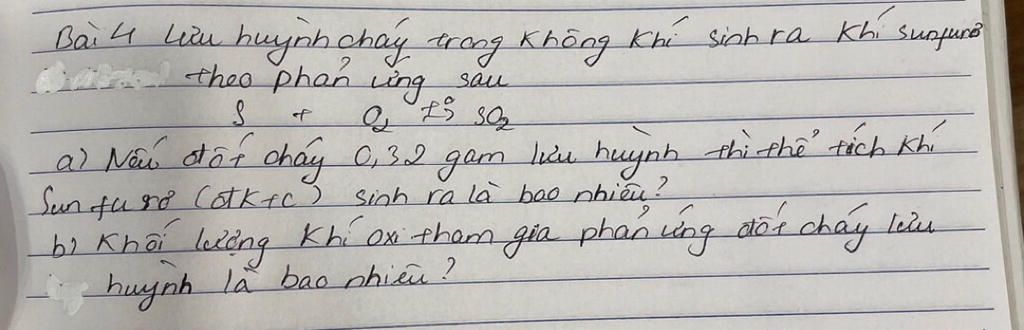 Bài 4 Lưu huỳnh cháy trong không khí sinh ra khí sunfurơ
theo phản ứng sau
S + O₂ t°→ SO₂
a) Nếu đốt cháy 0,32 gam lưu huỳnh thì thể tích khí
Sunfurơ (đktc) sinh ra là bao nhiêu?
b) Khối lượng khí oxi tham gia phản ứng đốt cháy lưu
huỳnh là bao nhiêu?